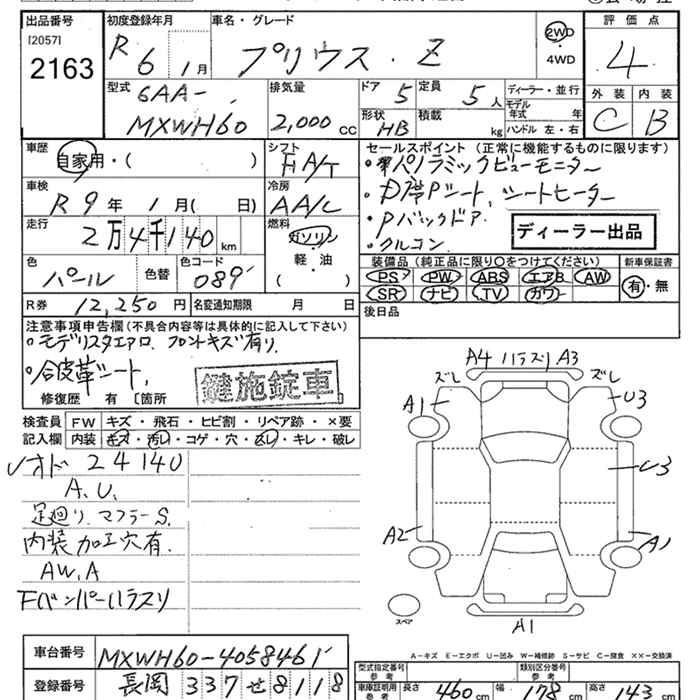 出品番号 初度登録年月 車名・グレード 評価点
[2057] 2163 R 6 1月 プリウス・Z 2WD・4WD 4
型式 排気量 ドア 5 定員 5人 ディーラー・並行 外装 内装
6AA- モデル年式 年
MXWH60 2,000cc 形状 HB 積載 kg ハンドル 左・右 C B
車歴 シフト セールスポイント (正常に機能するものに限ります)
自家用・( ) FA/T ・パノラミックビューモニター
車検 冷房 Pシート、シートヒーター
R 9年 1月( 日) AA/C ・Pバックドア
走行 燃料 ディーラー出品
2万4千140km ガソリン ・クルコン
軽・油
色 色替 色コード ( ) 装備品(純正品に限り○をつけてください) 新車保証書
パール 089 PS PW ABS エアB AW 有・無
SR ナビ TV カワ
R券 12,250円 名変通知期限 月 日 後日品
注意事項申告欄(不具合内容等は具体的に記入して下さい)
・モデリスタエアロ フロントキズ有り、
・合皮革シート、
鍵施錠車
修復歴 有[箇所
検査員記入欄 FW キズ・飛石・ヒビ割・リペア跡・×要
内装 キズ・汚レ・コゲ・穴・スレ・キレ・破レ
A4 ハラズリ A3
ズレ ズレ
A1 U3
U3
A2 A1
スペア
A1
レオド 24140
A.U.
足廻り マフラーS.
内装加工穴有.
AW.A
Fバンパーハラスリ
A-キズ E-エクボ U-凹み W-補修跡 S-サビ C-腐食 ××-交換済
車台番号 MXWH60-4058461
登録番号 長岡 337 せ 8118
型式指定番号 参考 類別区分番号 参考
車庫証明用 参考 長さ 460cm 幅 178cm 高さ 143cm